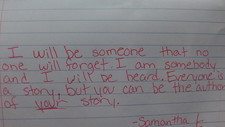 I will be someone that no
one will forget. I am somebody
and I will be heard. Everyone is
a story, but you can be the author
of your story.
-Samantha K.